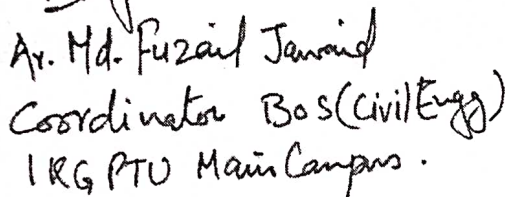 Ar. Md. Fuzail Jawaid
Coordinator BoS(Civil Engg)
IKG PTU Main Campus.